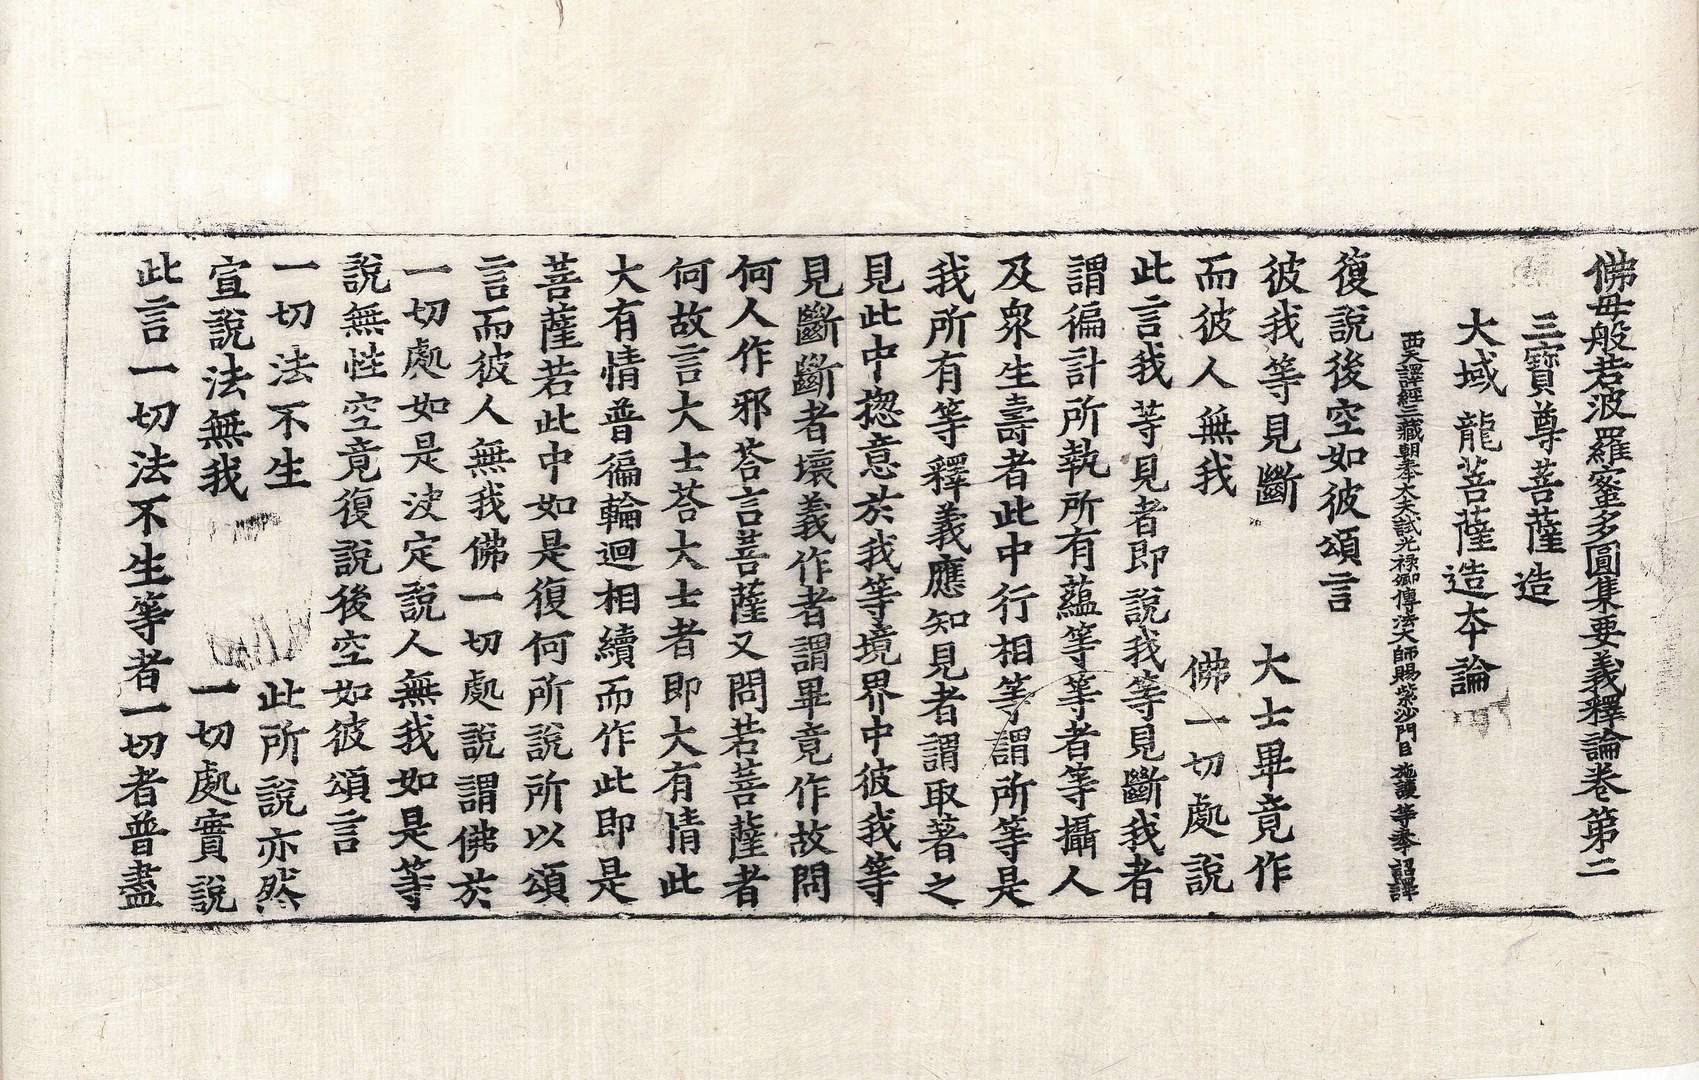 佛母般若波羅蜜多圓集要義釋論卷第二
三寶尊菩薩造
大域龍菩薩造本論
西天譯經三藏朝奉大夫試光祿卿傳法大師賜紫沙門臣施護等奉詔譯
復說後空如彼頌言
彼我等見斷　大士畢竟作
而彼人無我　佛一切處說
此言我等見者即說我等見斷我者
謂徧計所執所有蘊等等者等攝人
及衆生壽者此中行相等謂所等是
我所有等釋義應知見者謂取著之
見此中揔意於我等境界中彼我等
見斷斷者壞義作者謂畢竟作故問
何人作邪荅言菩薩又問若菩薩者
何故言大士荅大士者即大有情此
大有情普徧輪迴相續而作此即是
菩薩若此中如是復何所說所以頌
言而彼人無我佛一切處說謂佛於
一切處如是決定說人無我如是等
說無性空竟復說後空如彼頌言
一切法不生　此所說亦然
宣說法無我　一切處實說
此言一切法不生等者一切者普盡